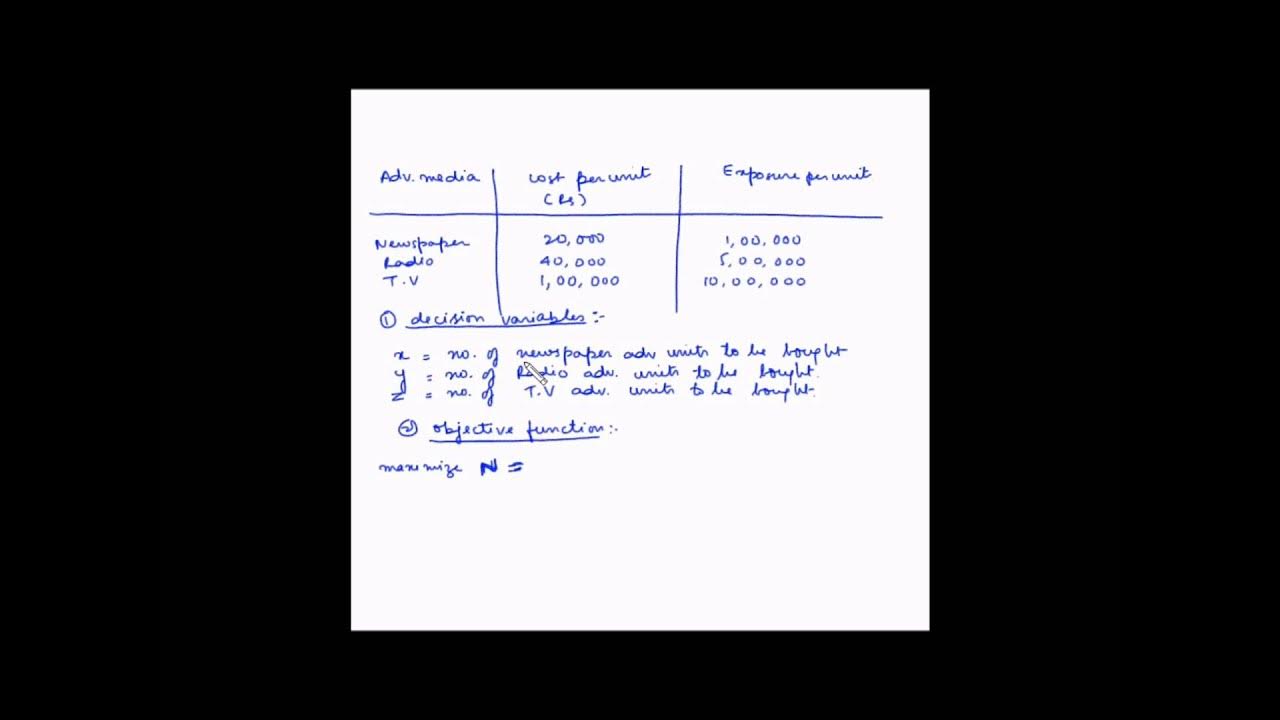 Adv. media cost per unit Exposure per unit
(Rs)
Newspaper 20,000 1,00,000
Radio 40,000 5,00,000
T.V 1,00,000 10,00,000
① decision variables :-
x = no. of newspaper adv units to be bought
y = no. of Radio adv. units to be bought.
z = no. of T.V adv. units to be bought.
② objective function :-
maximize N =